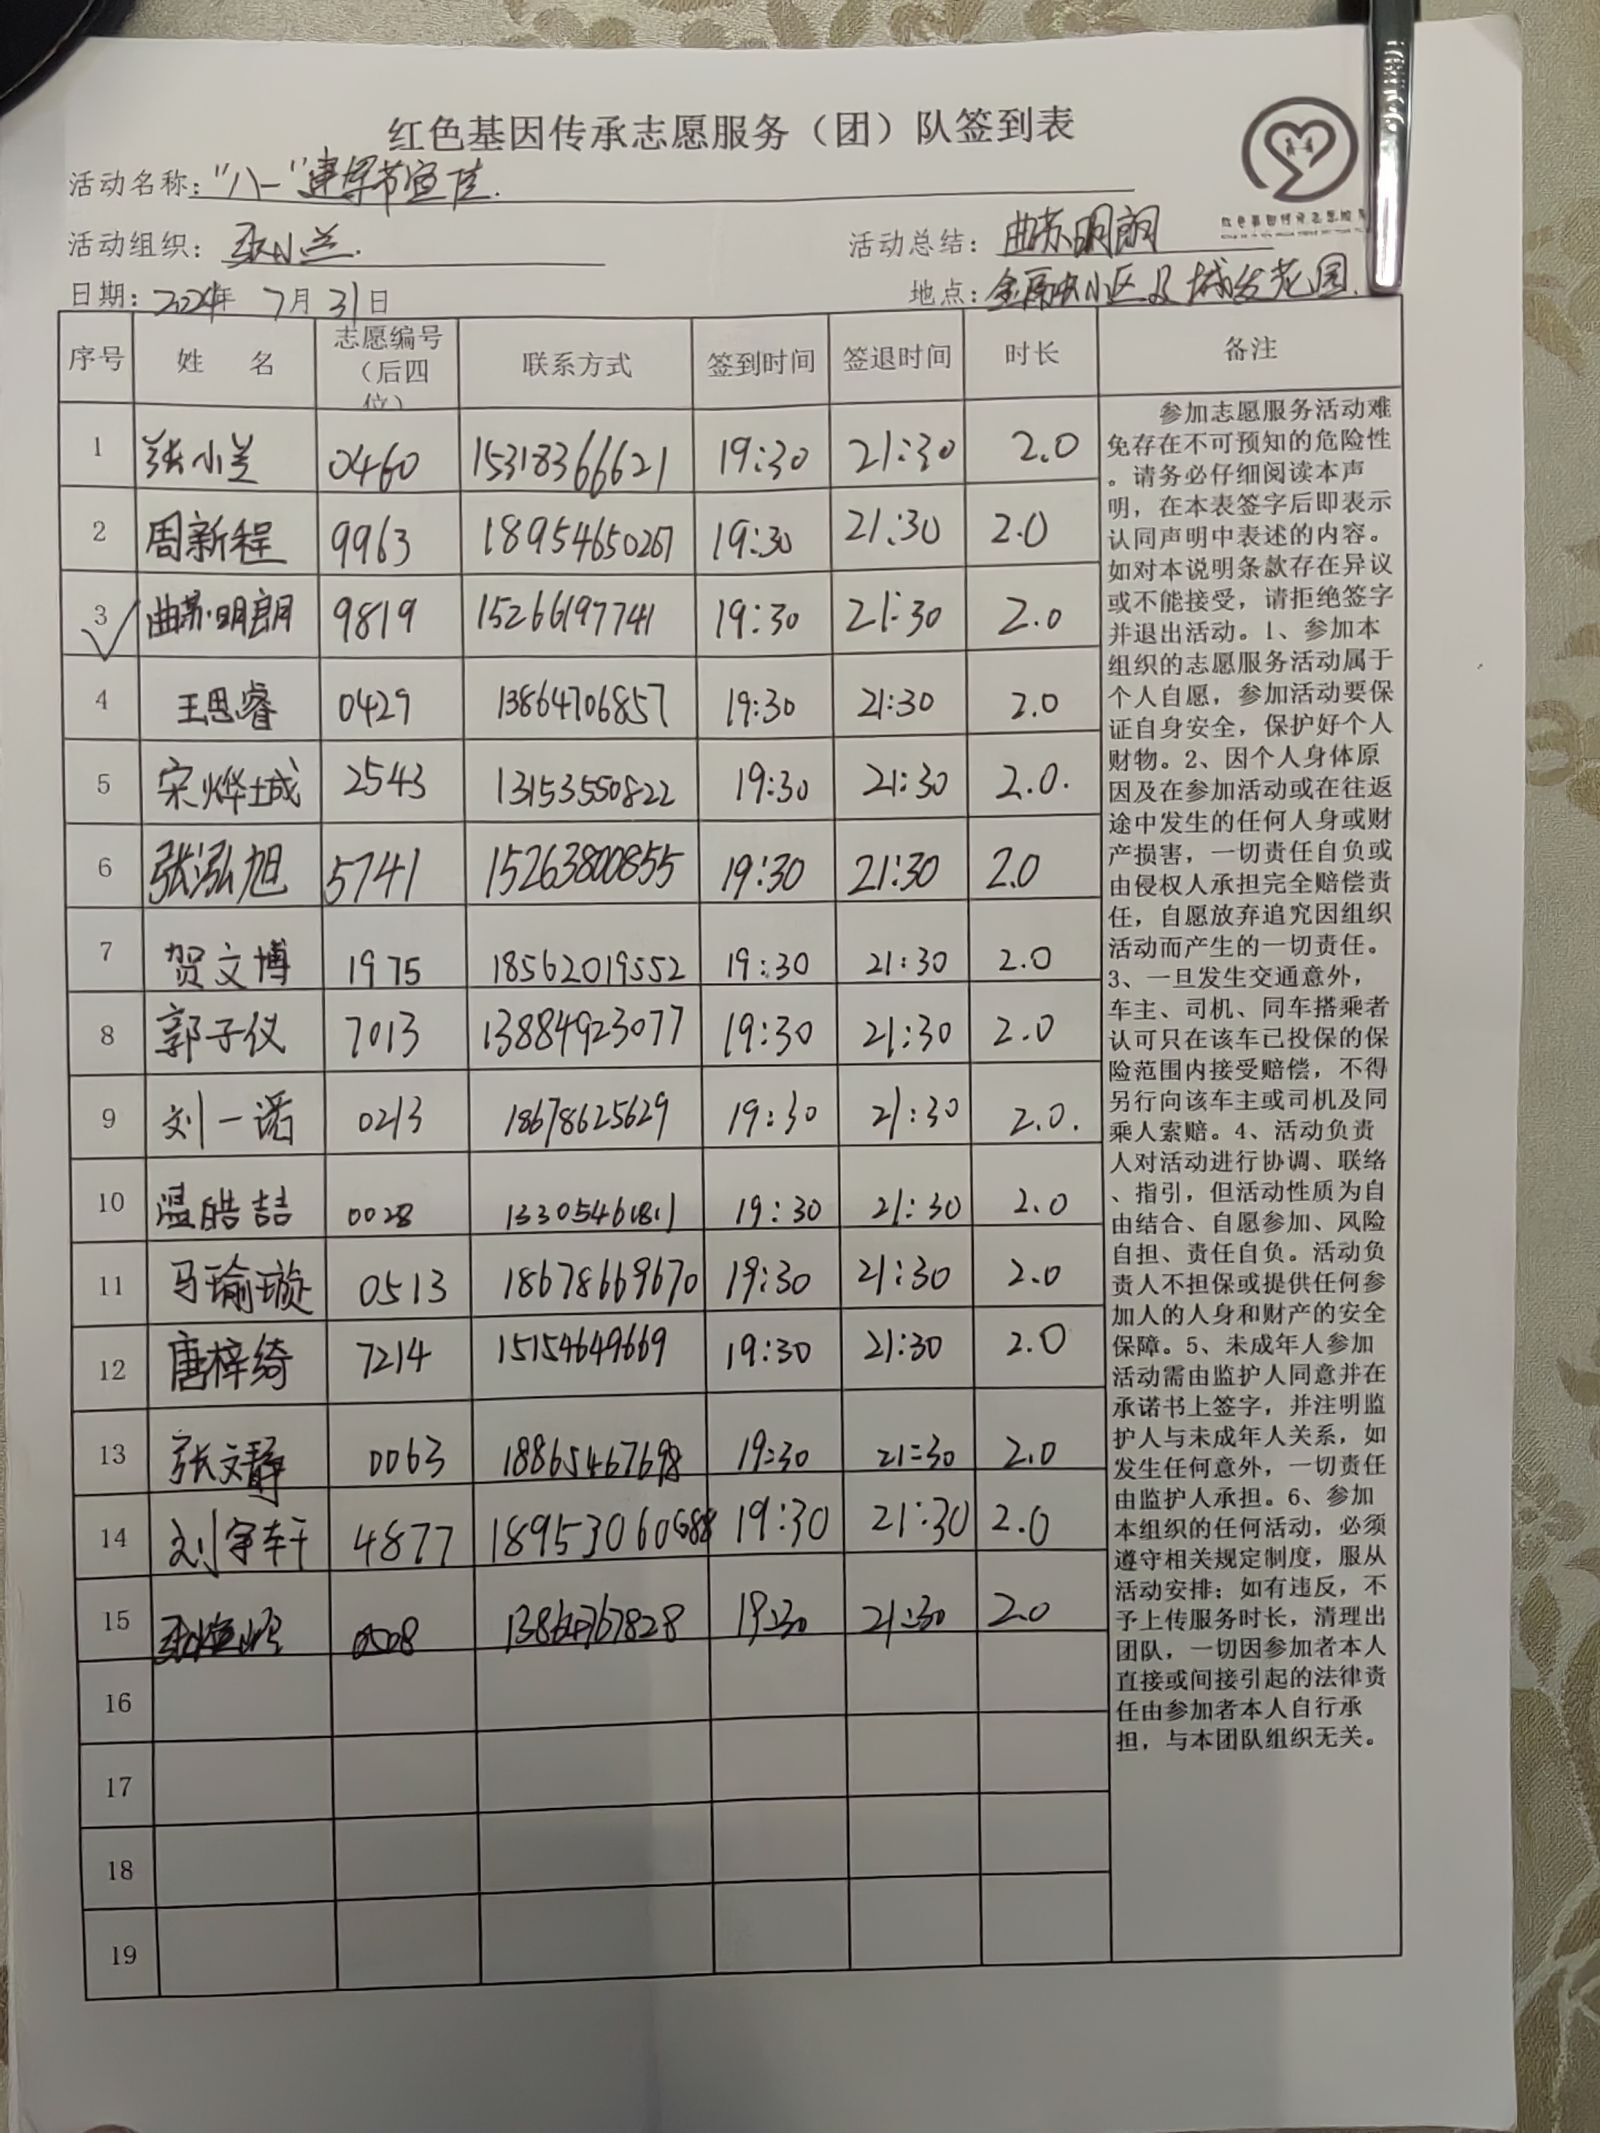 红色基因传承志愿服务（团）队签到表
活动名称："八一"建军节宣传.
活动组织：张小兰.
活动总结：曲苏明朗
日期：2024年 7月31日
地点：小区及城发花园.
序号 姓 名 志愿编号（后四位） 联系方式 签到时间 签退时间 时长 备注
1 张小兰 0460 15318366621 19:30 21:30 2.0
2 周新程 9963 18954650267 19:30 21:30 2.0
3 曲苏明朗 9819 15266197741 19:30 21:30 2.0
4 王思睿 0429 13864706857 19:30 21:30 2.0
5 宋烨城 2543 13153550822 19:30 21:30 2.0.
6 张泓旭 5741 15263800855 19:30 21:30 2.0
7 贺文博 1975 18562019552 19:30 21:30 2.0
8 郭子仪 7013 13884923077 19:30 21:30 2.0
9 刘一诺 0213 18678625629 19:30 21:30 2.0.
10 温皓喆 0028 19:30 21:30 2.0
11 马瑜璇 0513 18678669670 19:30 21:30 2.0
12 唐梓绮 7214 15154649669 19:30 21:30 2.0
13 张文静 0063 18865467698 19:30 21:30 2.0
14 刘宇轩 4877 19:30 21:30 2.0
15 0508 19:30 21:30 2.0
16
17
18
19
参加志愿服务活动难
免存在不可预知的危险性
。请务必仔细阅读本声
明，在本表签字后即表示
认同声明中表述的内容。
如对本说明条款存在异议
或不能接受，请拒绝签字
并退出活动。1、参加本
组织的志愿服务活动属于
个人自愿，参加活动要保
证自身安全，保护好个人
财物。2、因个人身体原
因及在参加活动或在往返
途中发生的任何人身或财
产损害，一切责任自负或
由侵权人承担完全赔偿责
任，自愿放弃追究因组织
活动而产生的一切责任。
3、一旦发生交通意外，
车主、司机、同车搭乘者
认可只在该车已投保的保
险范围内接受赔偿，不得
另行向该车主或司机及同
乘人索赔。4、活动负责
人对活动进行协调、联络
、指引，但活动性质为自
由结合、自愿参加、风险
自担、责任自负。活动负
责人不担保或提供任何参
加人的人身和财产的安全
保障。5、未成年人参加
活动需由监护人同意并在
承诺书上签字，并注明监
护人与未成年人关系，如
发生任何意外，一切责任
由监护人承担。6、参加
本组织的任何活动，必须
遵守相关规定制度，服从
活动安排；如有违反，不
予上传服务时长，清理出
团队，一切因参加者本人
直接或间接引起的法律责
任由参加者本人自行承
担，与本团队组织无关。